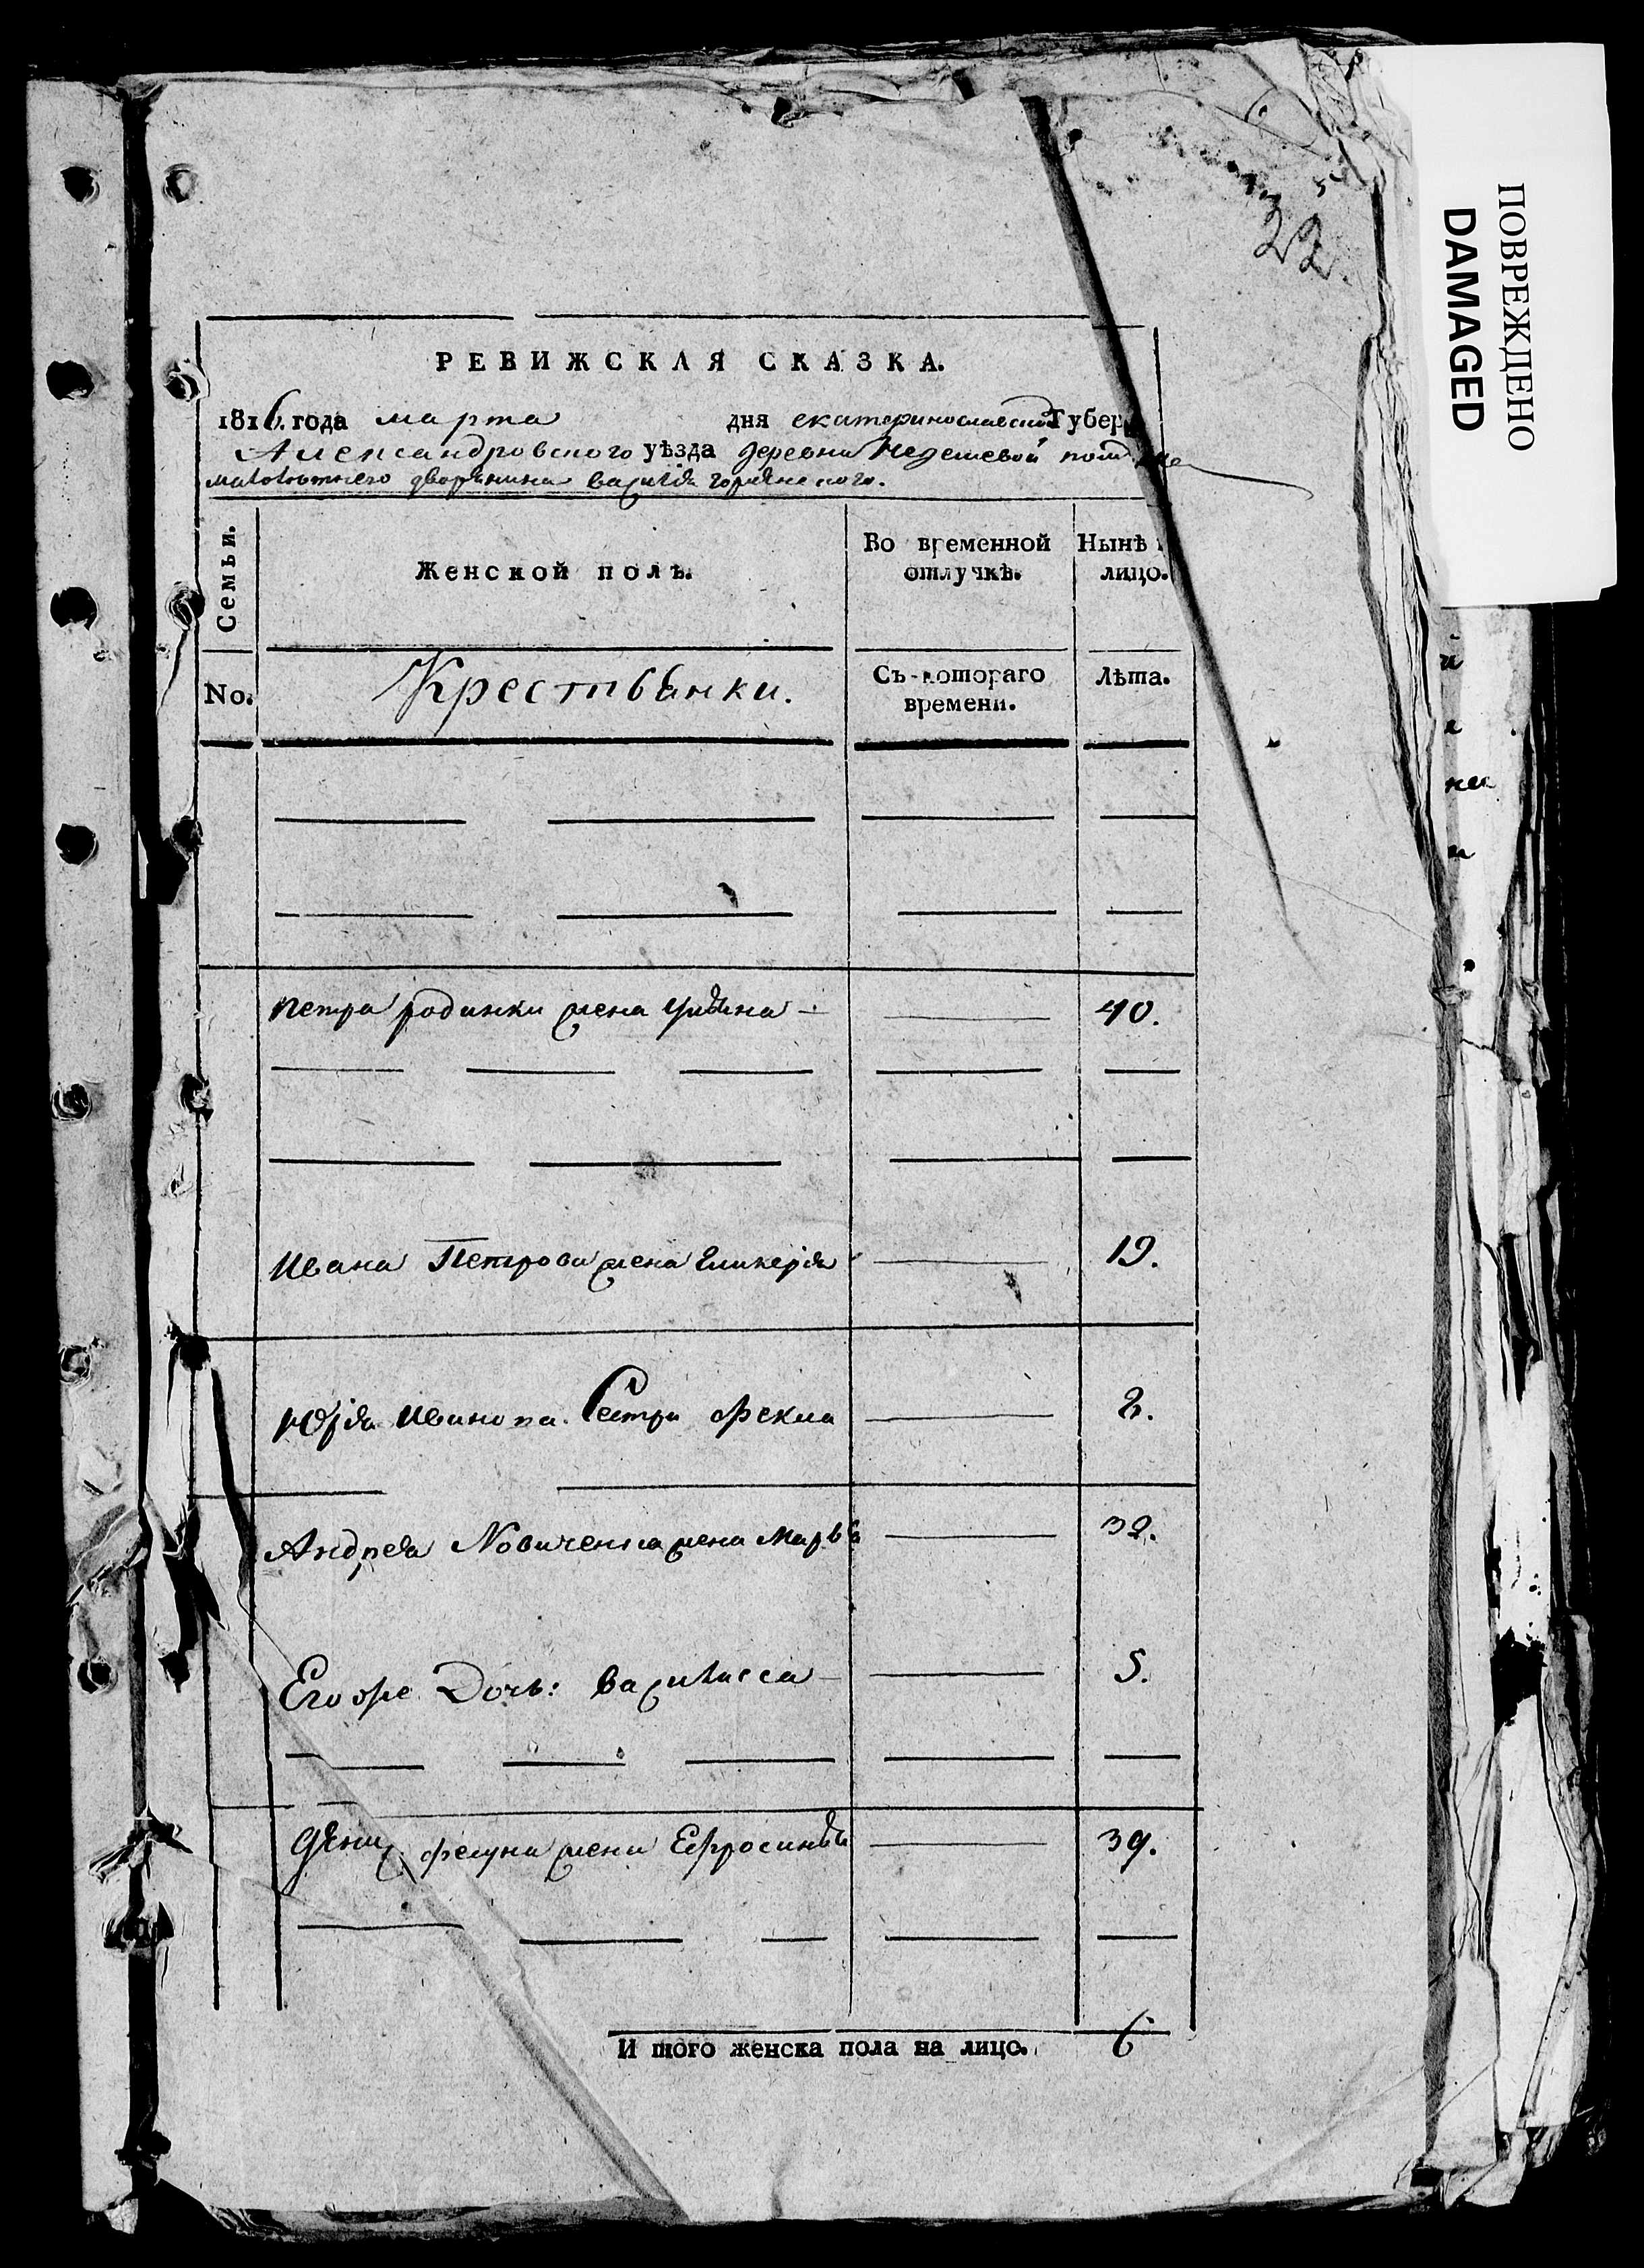 ПОВРЕЖДЕНО
DAMAGED
32.
РЕВИЖСКАЯ СКАЗКА.
1816. года марта дня екатеринославской Губер
Александровского уѣзда деревни Недешевой
малолѣтнего дворянина василія горянского.
Семьи.
Женской полъ.
Во временной отлучкѣ.
Нынѣ лицо.
No.
Крестьянки.
Съ котораго времени.
Лѣта.
Петра родинки жена Ульяна 40.
Ивана Петрова жена Гликерія 19.
Юрія Иванова Сестра Фекла 2.
Андрея Новиченка жена Марья 32.
Егоже Дочь: василисса 5.
жена Ефросинья 39.
И того женска пола на лицо. 6